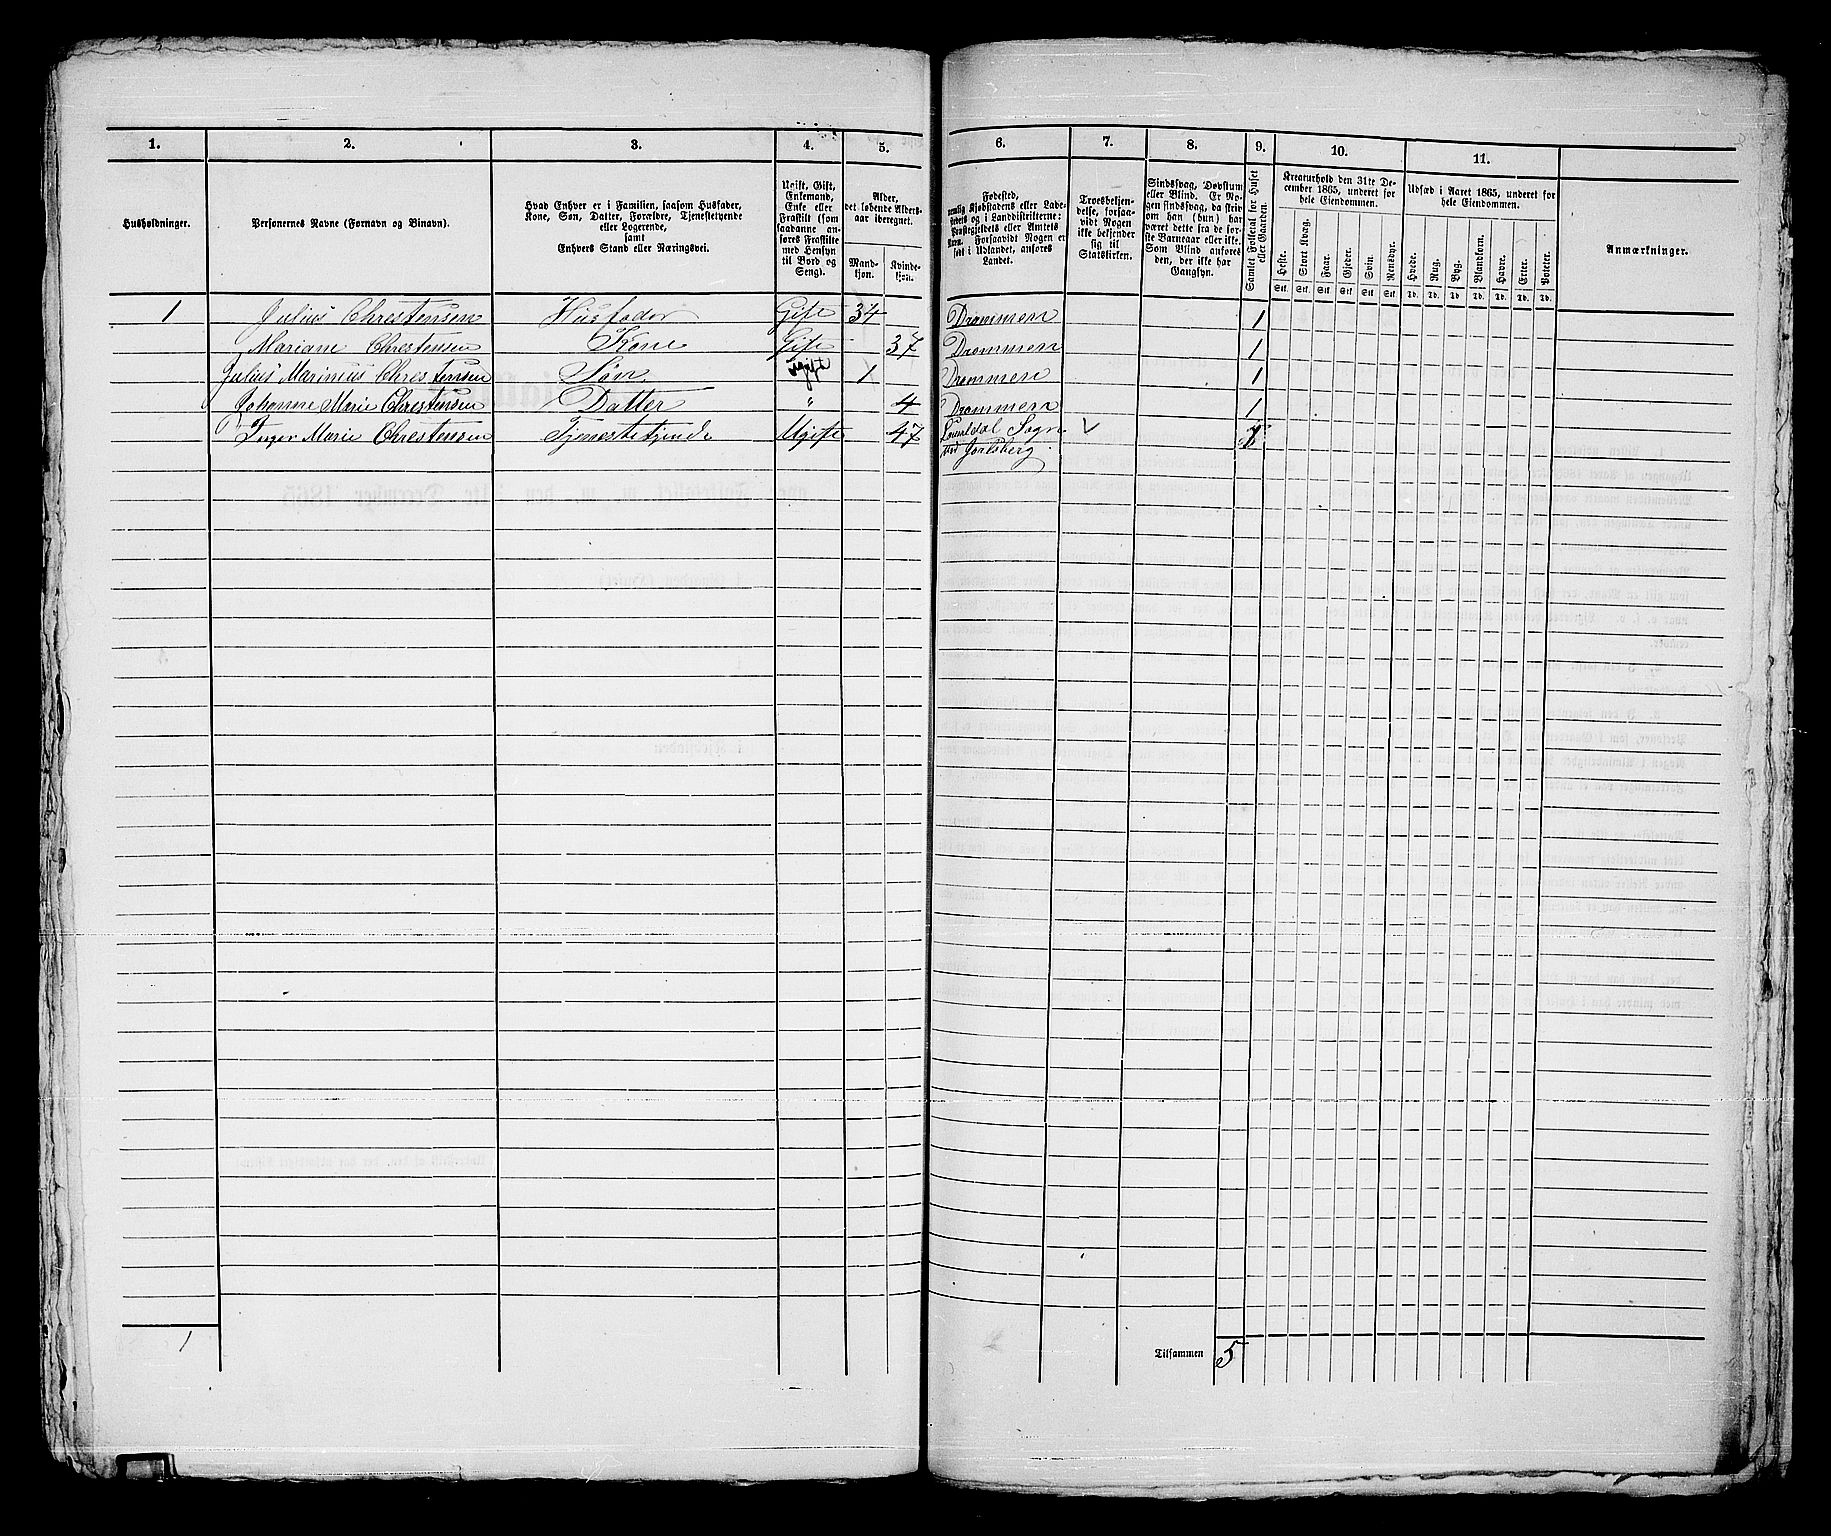 1. 2. 3. 4. 5. 6. 7. 8. 9. 10. 11.
Husholdninger.
Personernes Navne (Fornavn og Binavn).
Hvad Enhver er i Familien, saasom Husfader,
Kone, Søn, Datter, Forældre, Tjenestetyende
eller Logerende,
samt
Enhvers Stand eller Næringsvei.
Ugift, Gift,
Enkemand,
Enke eller
Fraskilt (som
saadanne an-
føres Fraskilte
med Hensyn
til Bord og
Seng).
Alder,
det løbende Alders-
aar iberegnet.
Mand-
kjøn.
Kvinde-
kjøn.
Fødested,
nemlig Kjøbstadens eller Lade-
stedets og i Landdistrikterne:
Præstegjeldets eller Amtets
Navn. Forsaavidt Nogen er
født i Udlandet, anføres
Landet.
Troesbekjen-
delse, forsaa-
vidt Nogen
ikke bekjender
sig til
Statskirken.
Sindssvag, Døvstum
eller Blind. Er No-
gen sindssvag, da skriv
om han (hun) har
været dette fra de før-
ste Barneaar eller ikke.
Som Blind anføres
den, der ikke har
Gangsyn.
Samlet Folketal for Huset
eller Gaarden.
Kreaturhold den 31te De-
cember 1865, underet for
hele Eiendommen.
Heste. Stort Kvæg. Faar. Gjeder. Svin. Rensdyr.
Stk. Stk. Stk. Stk. Stk. Stk.
Udsæd i Aaret 1865, underet for
hele Eiendommen.
Hvede. Rug. Byg. Blandkorn. Havre. Erter. Poteter.
Td. Td. Td. Td. Td. Td. Td.
Anmærkninger.
1 Julius Chrestensen Husfader Gift 34 Drammen 1
Mariane Chrestensen Kone Gift 37 Drammen 1
Julius Marinius Chrestensen Søn Ugift 1 Drammen 1
Johanne Marie Chrestensen Datter " 4 Drammen 1
Inger Marie Chrestensen Tjenestetjende Ugift 47 Sogn 1
Jarlsberg
1
Tilsammen 5